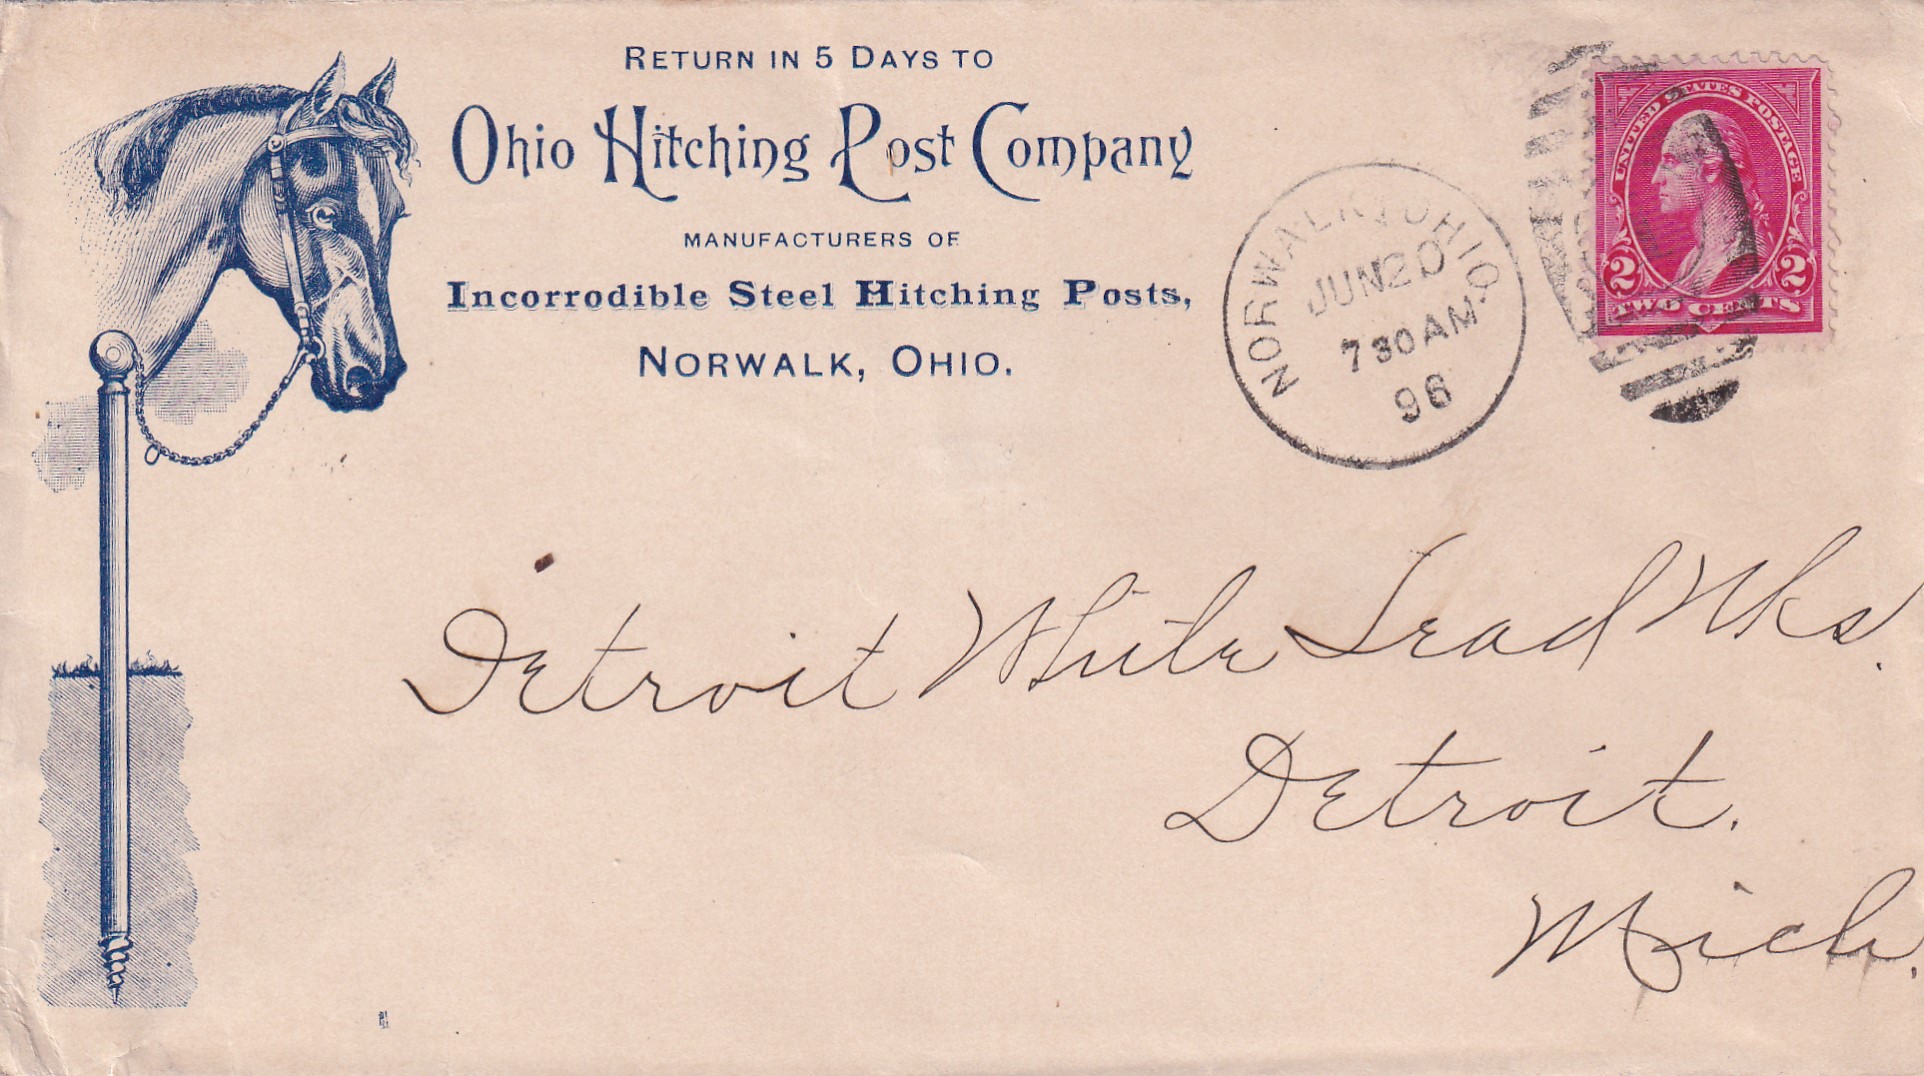 RETURN IN 5 DAYS TO
Ohio Hitching Post Company
MANUFACTURERS OF
Incorrodible Steel Hitching Posts,
NORWALK, OHIO.
NORWALK, OHIO.
JUN 20
7 30 AM
96
UNITED STATES POSTAGE
2 2
TWO CENTS
Detroit White Lead Wks.
Detroit.
Mich.